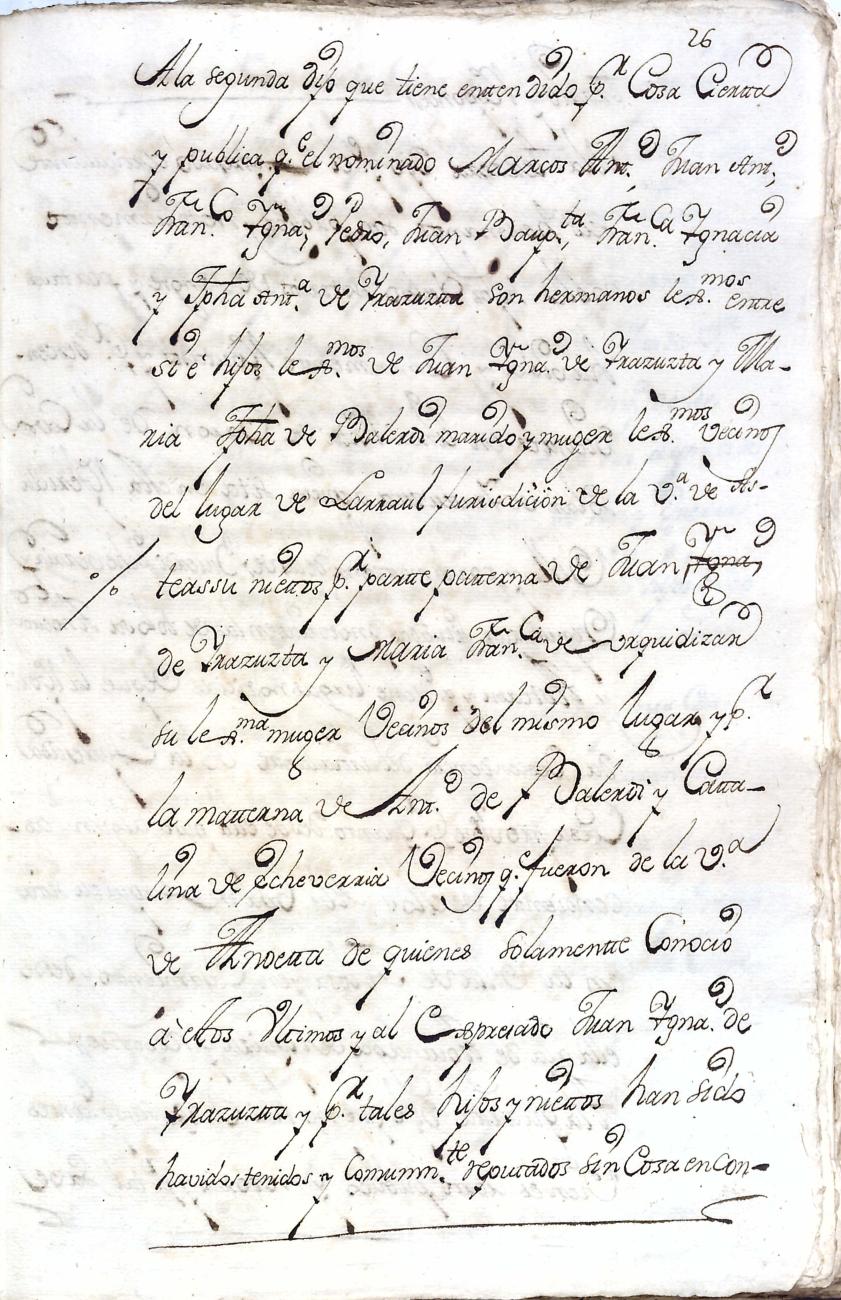 26
A la segunda dijo que tiene entendido p.r Cosa Cierta
y publica q.e el nominado Marcos Ant.o Juan Ant.o
Fran.co Ygna.o Pedro, Juan Baup.ta Fran.ca Ygnacia
y Jpha Ant.a de Yrazuzta son hermanos lex.mos entre
si è hijos lex.mos de Juan Ygna.o de Yrazuzta y Ma-
ria Jpha de Balerdi marido y muger lex.mos vecinos
del lugar de Larraul jurisdicion de la v.a de As-
teassu niettos p.r partte patterna de Juan Ygna.o
de Yrazuzta y Maria Fran.ca de Vrquidizar
su lex.ma muger Vecinos del mismo lugar y p.r
la matterna de Ant.o de Balerdi y Catta-
lina de Echeverria Vecinos q.e fueron de la v.a
de Andetta de quienes solamentte Conocio
à estos Vltimos y al Espresado Juan Ygna.o de
Yrazuzta y p.r tales hijos y niettos han sido
havidos tenidos y Comunm.te reputados sin Cosa en Con-